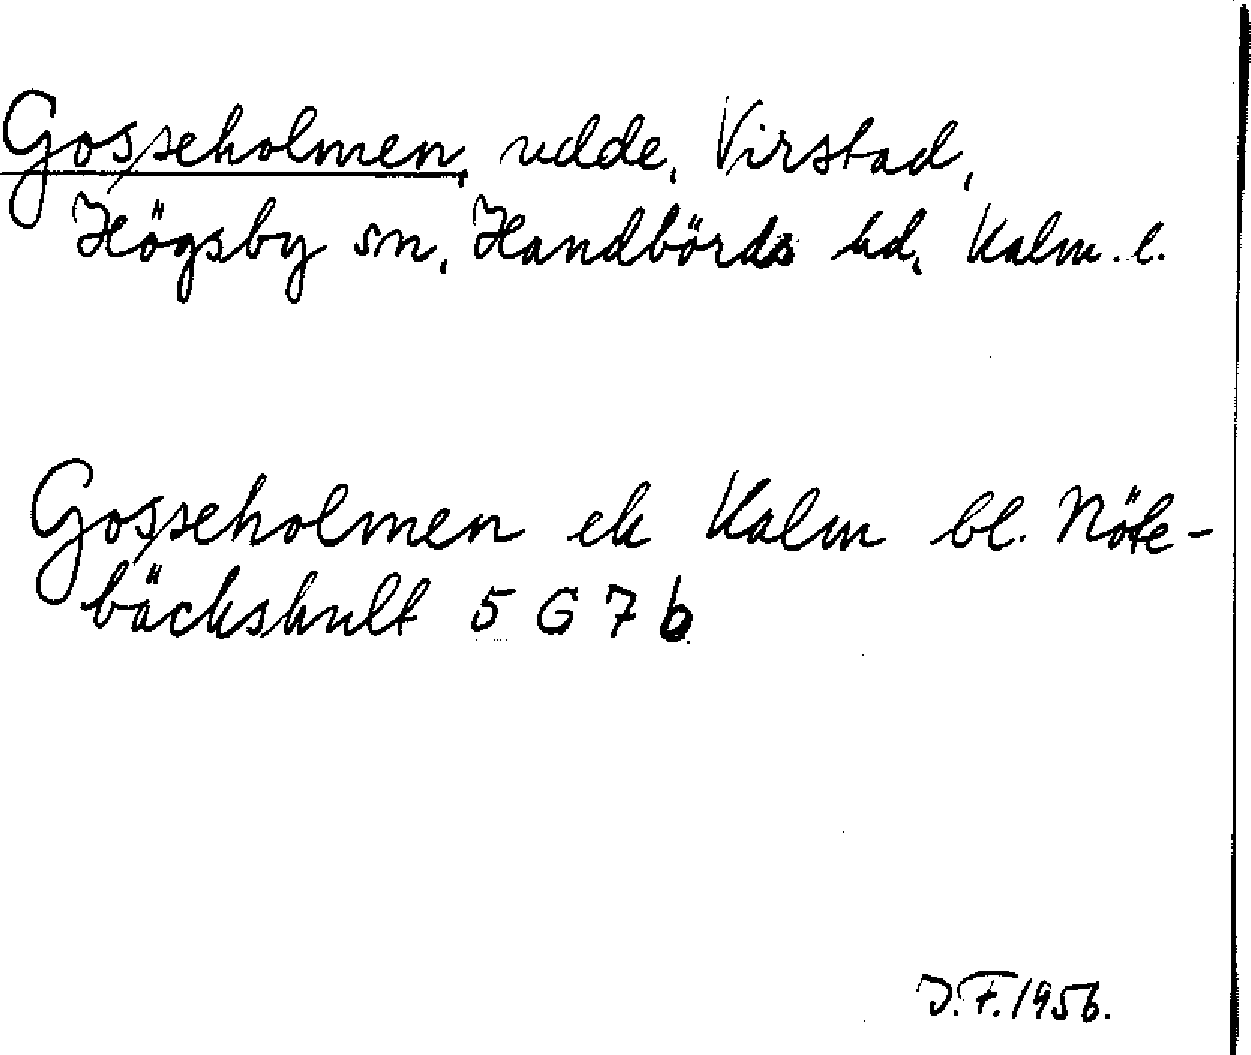 Gosseholmen, udde, Virstad,
Högsby sn, Handbörds hd, Kalm. l.
Gosseholmen ek Kalm bl. Nöte-
bäckshult 5 G 7 b
J.F. 1956.